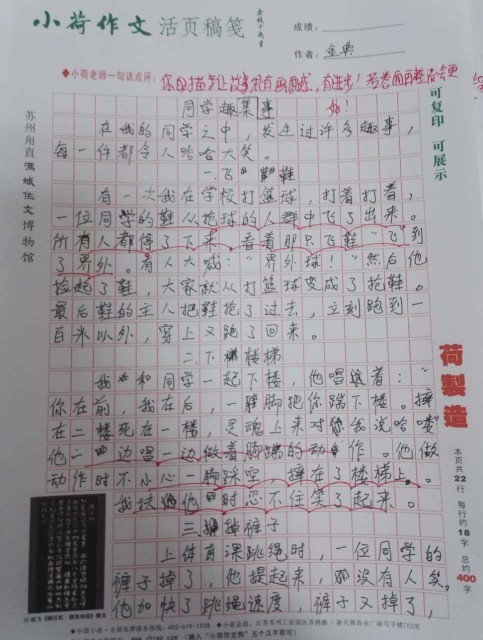 小荷作文 活页稿笺
成绩:
作者: 金典
◆小荷老师一句话点评: 你的描写让故事很有画面感,有进步!若卷面再整洁会更
好!
可复印 可展示
苏州甪直澄城作文博物馆
同学趣集事
在我的同学之中,发生过许多趣事,
每一件都令人哈哈大笑。
一.飞鞋
有一次我在学校打篮球,打着打着,
一位同学的鞋从抢球的人群中飞了出来。
所有人都停了下来,看着那只飞鞋“飞”到
了界外。有人大喊:“界外球!”然后他
捡起了鞋,大家就从打篮球变成了抢鞋。
最后鞋的主人把鞋抢了过去,立刻跑到一
百米以外,穿上又跑了回来。
二.下楼梯
我和同学一起下楼,他唱着:“
你在前,我在后,一脚把你踹下楼。摔
在二楼死在一楼,灵魂上来对我说哈喽”
他一边唱一边做着脚踹的动作。他做
动作时不小心一脚踩空,摔在了楼梯上。
我扶他时忍不住笑了起来。
三.掉裤子
上体育课跳绳时,一位同学的
裤子掉了,他提起来,没有人笑。
他加快了跳绳速度,裤子又掉了,
荷製造
本页共22行 每行约18字 总约400字